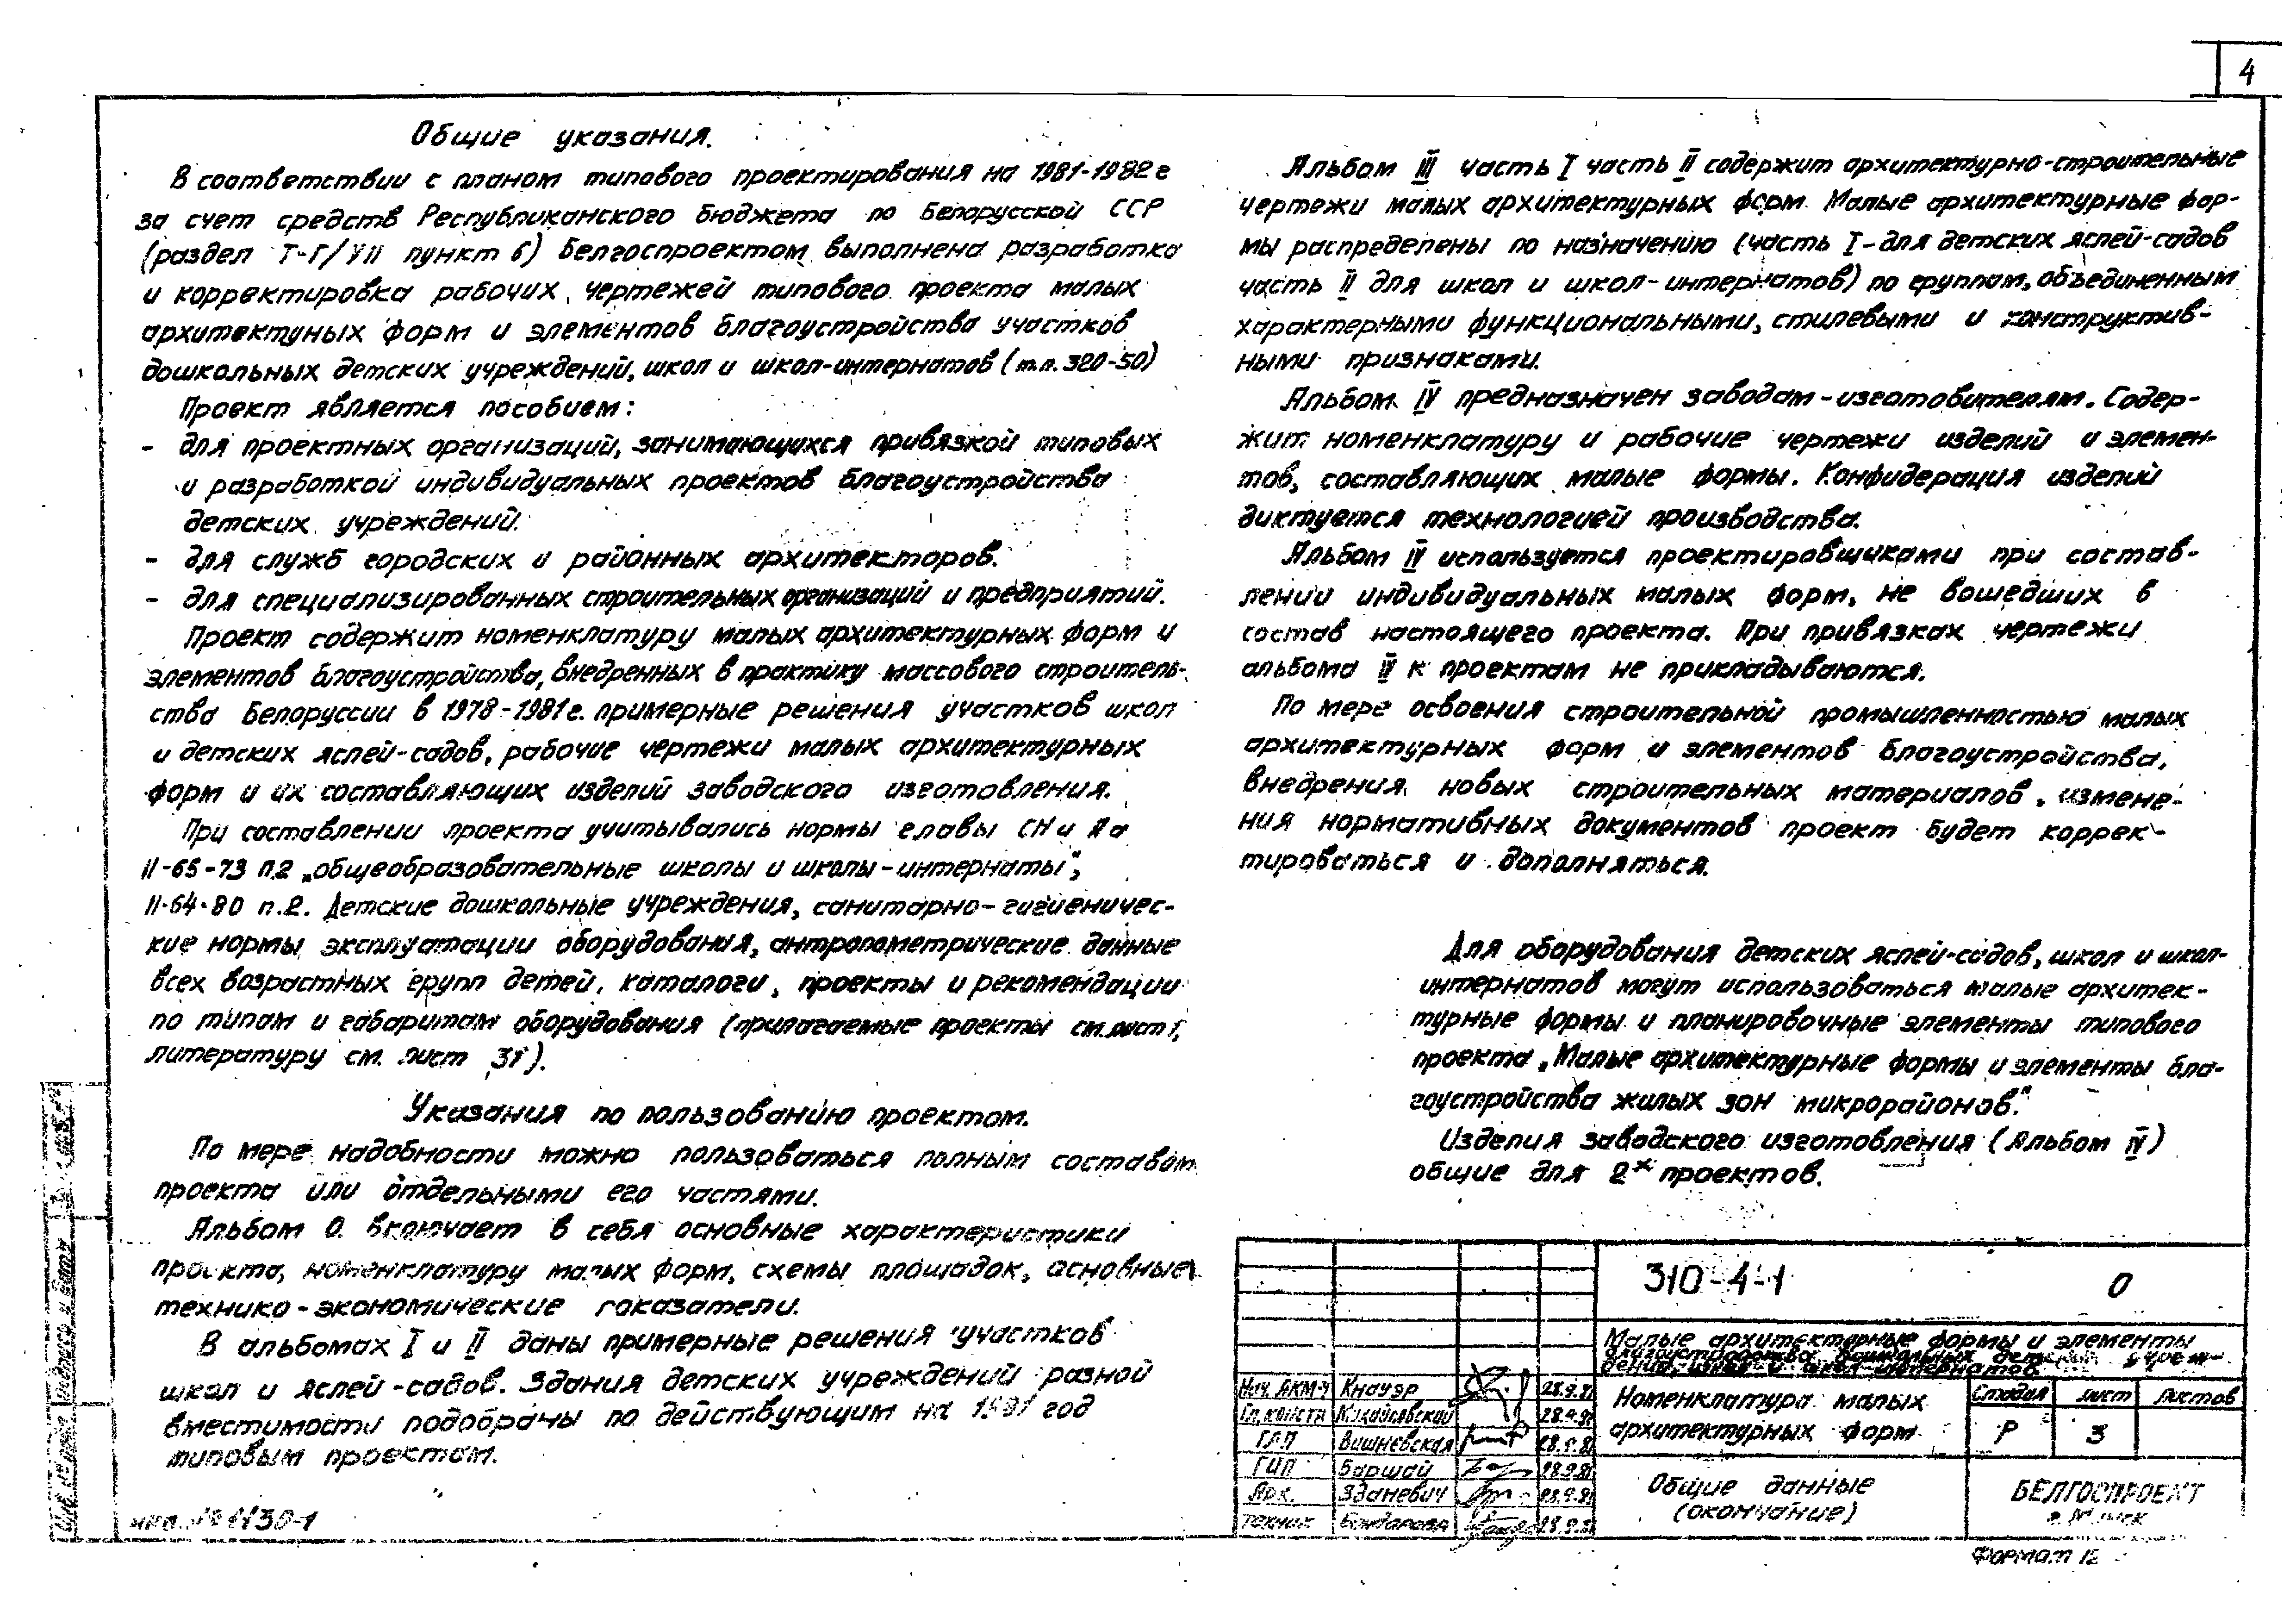 4
Общие указания.
В соответствии с планом типового проектирования на 1981-1982г
за счет средств Республиканского бюджета по Белорусской ССР
(раздел Т-Г/VII пункт 6) Белгоспроектом выполнена разработка
и корректировка рабочих чертежей типового проекта малых
архитектуных форм и элементов благоустройства участков
дошкольных детских учреждений, школ и школ-интернатов (т.п. 320-50)
Проект является пособием:
- для проектных организаций, занимающихся привязкой типовых
и разработкой индивидуальных проектов благоустройства
детских учреждений.
- для служб городских и районных архитекторов.
- для специализированных строительных организаций и предприятий.
Проект содержит номенклатуру малых архитектурных форм и
элементов благоустройства, внедренных в практику массового строитель-
ства Белоруссии в 1978-1981г. примерные решения участков школ
и детских яслей-садов, рабочие чертежи малых архитектурных
форм и их составляющих изделий заводского изготовления.
При составлении проекта учитывались нормы главы СН и П а
II-65-73 п.2 „общеобразовательные школы и школы-интернаты",
II-64-80 п.2. Детские дошкольные учреждения, санитарно-гигиеничес-
кие нормы эксплуатации оборудования, антропометрические данные
всех возрастных групп детей, каталоги, проекты и рекомендации
по типам и габаритам оборудования (прилагаемые проекты см.лист 1,
литературу см. лист 31).
Указания по пользованию проектом.
По мере надобности можно пользоваться полным составом
проекта или отдельными его частями.
Альбом 0. включает в себя основные характеристики
проекта, номенклатуру малых форм, схемы площадок, основные
технико-экономические показатели.
В альбомах I и II даны примерные решения участков
школ и яслей-садов. Здания детских учреждений разной
вместимости подобраны по действующим на 1981 год
типовым проектам.
Альбом III часть I часть II содержит архитектурно-строительные
чертежи малых архитектурных форм. Малые архитектурные фор-
мы распределены по назначению (часть I-для детских яслей-садов
часть II для школ и школ-интернатов) по группам, объединенным
характерными функциональными, стилевыми и конструктив-
ными признаками.
Альбом IV предназначен заводам-изготовителям. Содер-
жит номенклатуру и рабочие чертежи изделий и элемен-
тов, составляющих малые формы. Конфидерация изделий
диктуется технологией производства.
Альбом IV используется проектировщиками при состав-
лении индивидуальных малых форм, не вошедших в
состав настоящего проекта. При привязках чертежи
альбома IV к проектам не прикладываются.
По мере освоения строительной промышленностью малых
архитектурных форм и элементов благоустройства,
внедрения новых строительных материалов, измене-
ния нормативных документов проект будет коррек-
тироваться и дополняться.
Для оборудования детских яслей-садов, школ и школ-
интернатов могут использоваться малые архитек-
турные формы и планировочные элементы типового
проекта „Малые архитектурные формы и элементы бла-
гоустройства жилых зон микрорайонов."
Изделия заводского изготовления (Альбом IV)
общие для 2х проектов.
310-4-1 0
Малые архитектурные формы и элементы
благоустройства дошкольных детских учреж-
дений, школ и школ-интернатов.
Нач. АКМ-4 Кнауэр 28.9.81
Гл. констр 28.9.81
ГАП Вишневская 28.9.81
ГИП Баршай 28.9.81
Арх. Зданевич 28.9.81
техник Бондарова 28.9.81
Номенклатура малых
архитектурных форм
Стадия лист листов
Р 3
Общие данные
(окончание)
БЕЛГОСПРОЕКТ
г. Минск
Формат 12
инв. № 1130-1
Инв. № подл. Подпись и дата